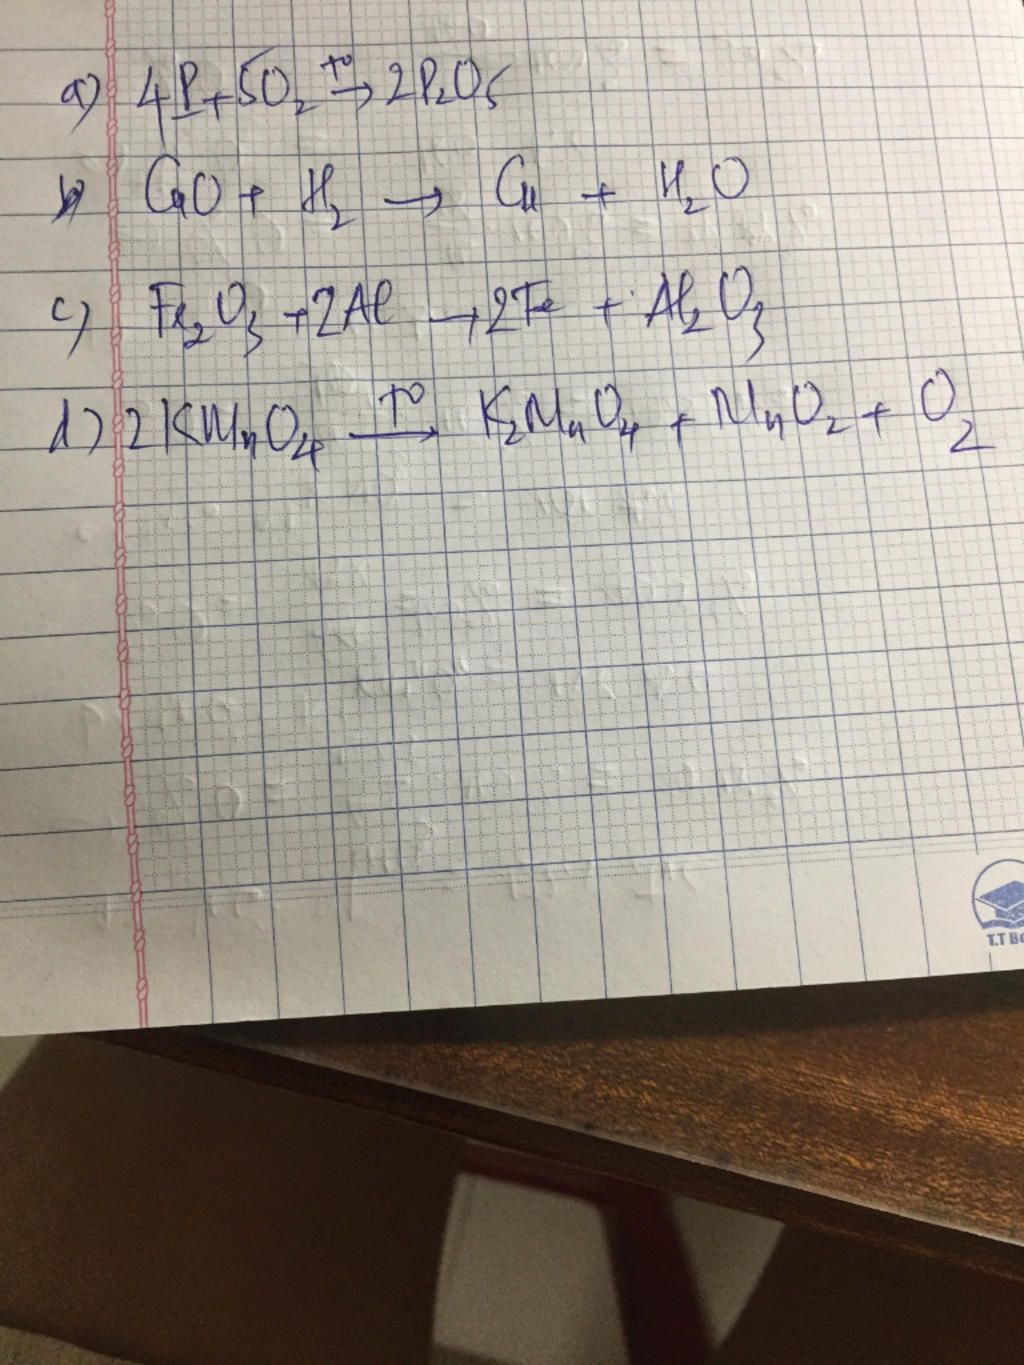 a) 4P + 5O₂ t⁰→ 2P₂O₅
b) CuO + H₂ → Cu + H₂O
c) Fe₂O₃ + 2Al → 2Fe + Al₂O₃
d) 2KMnO₄ t⁰→ K₂MnO₄ + MnO₂ + O₂
T.T